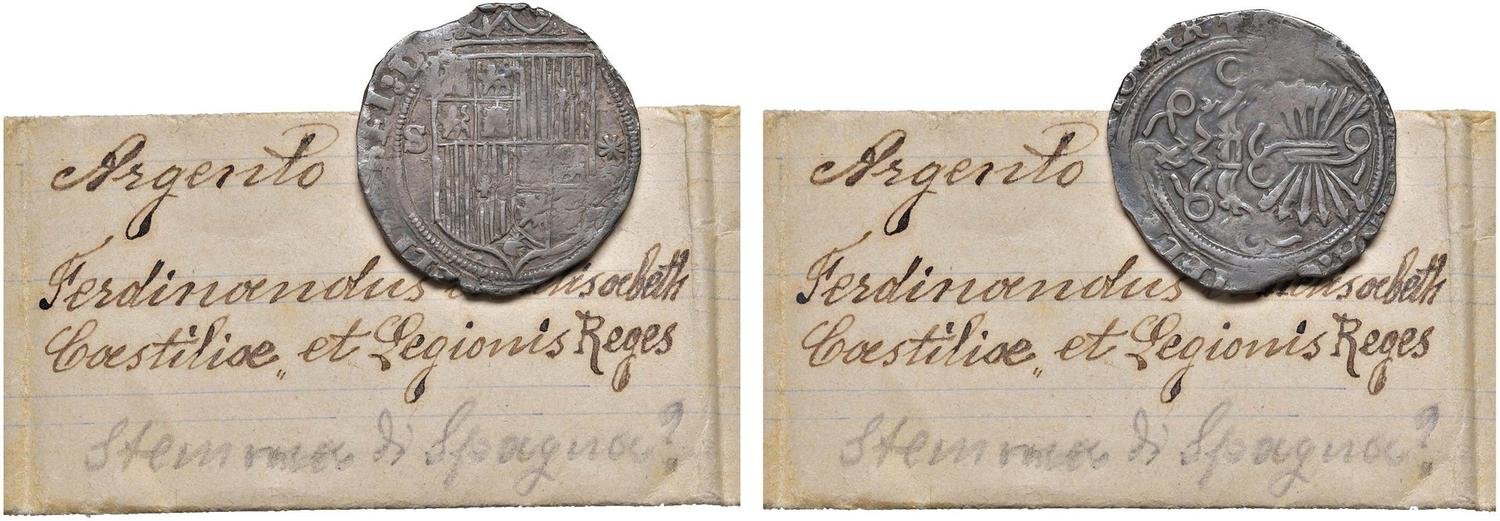 Argento
Ferdinandus Elisabeth
Castiliae,, et Legionis Reges
Stemma di Spagna?
S
Argento
Ferdinandus Elisabeth
Castiliae,, et Legionis Reges
Stemma di Spagna?